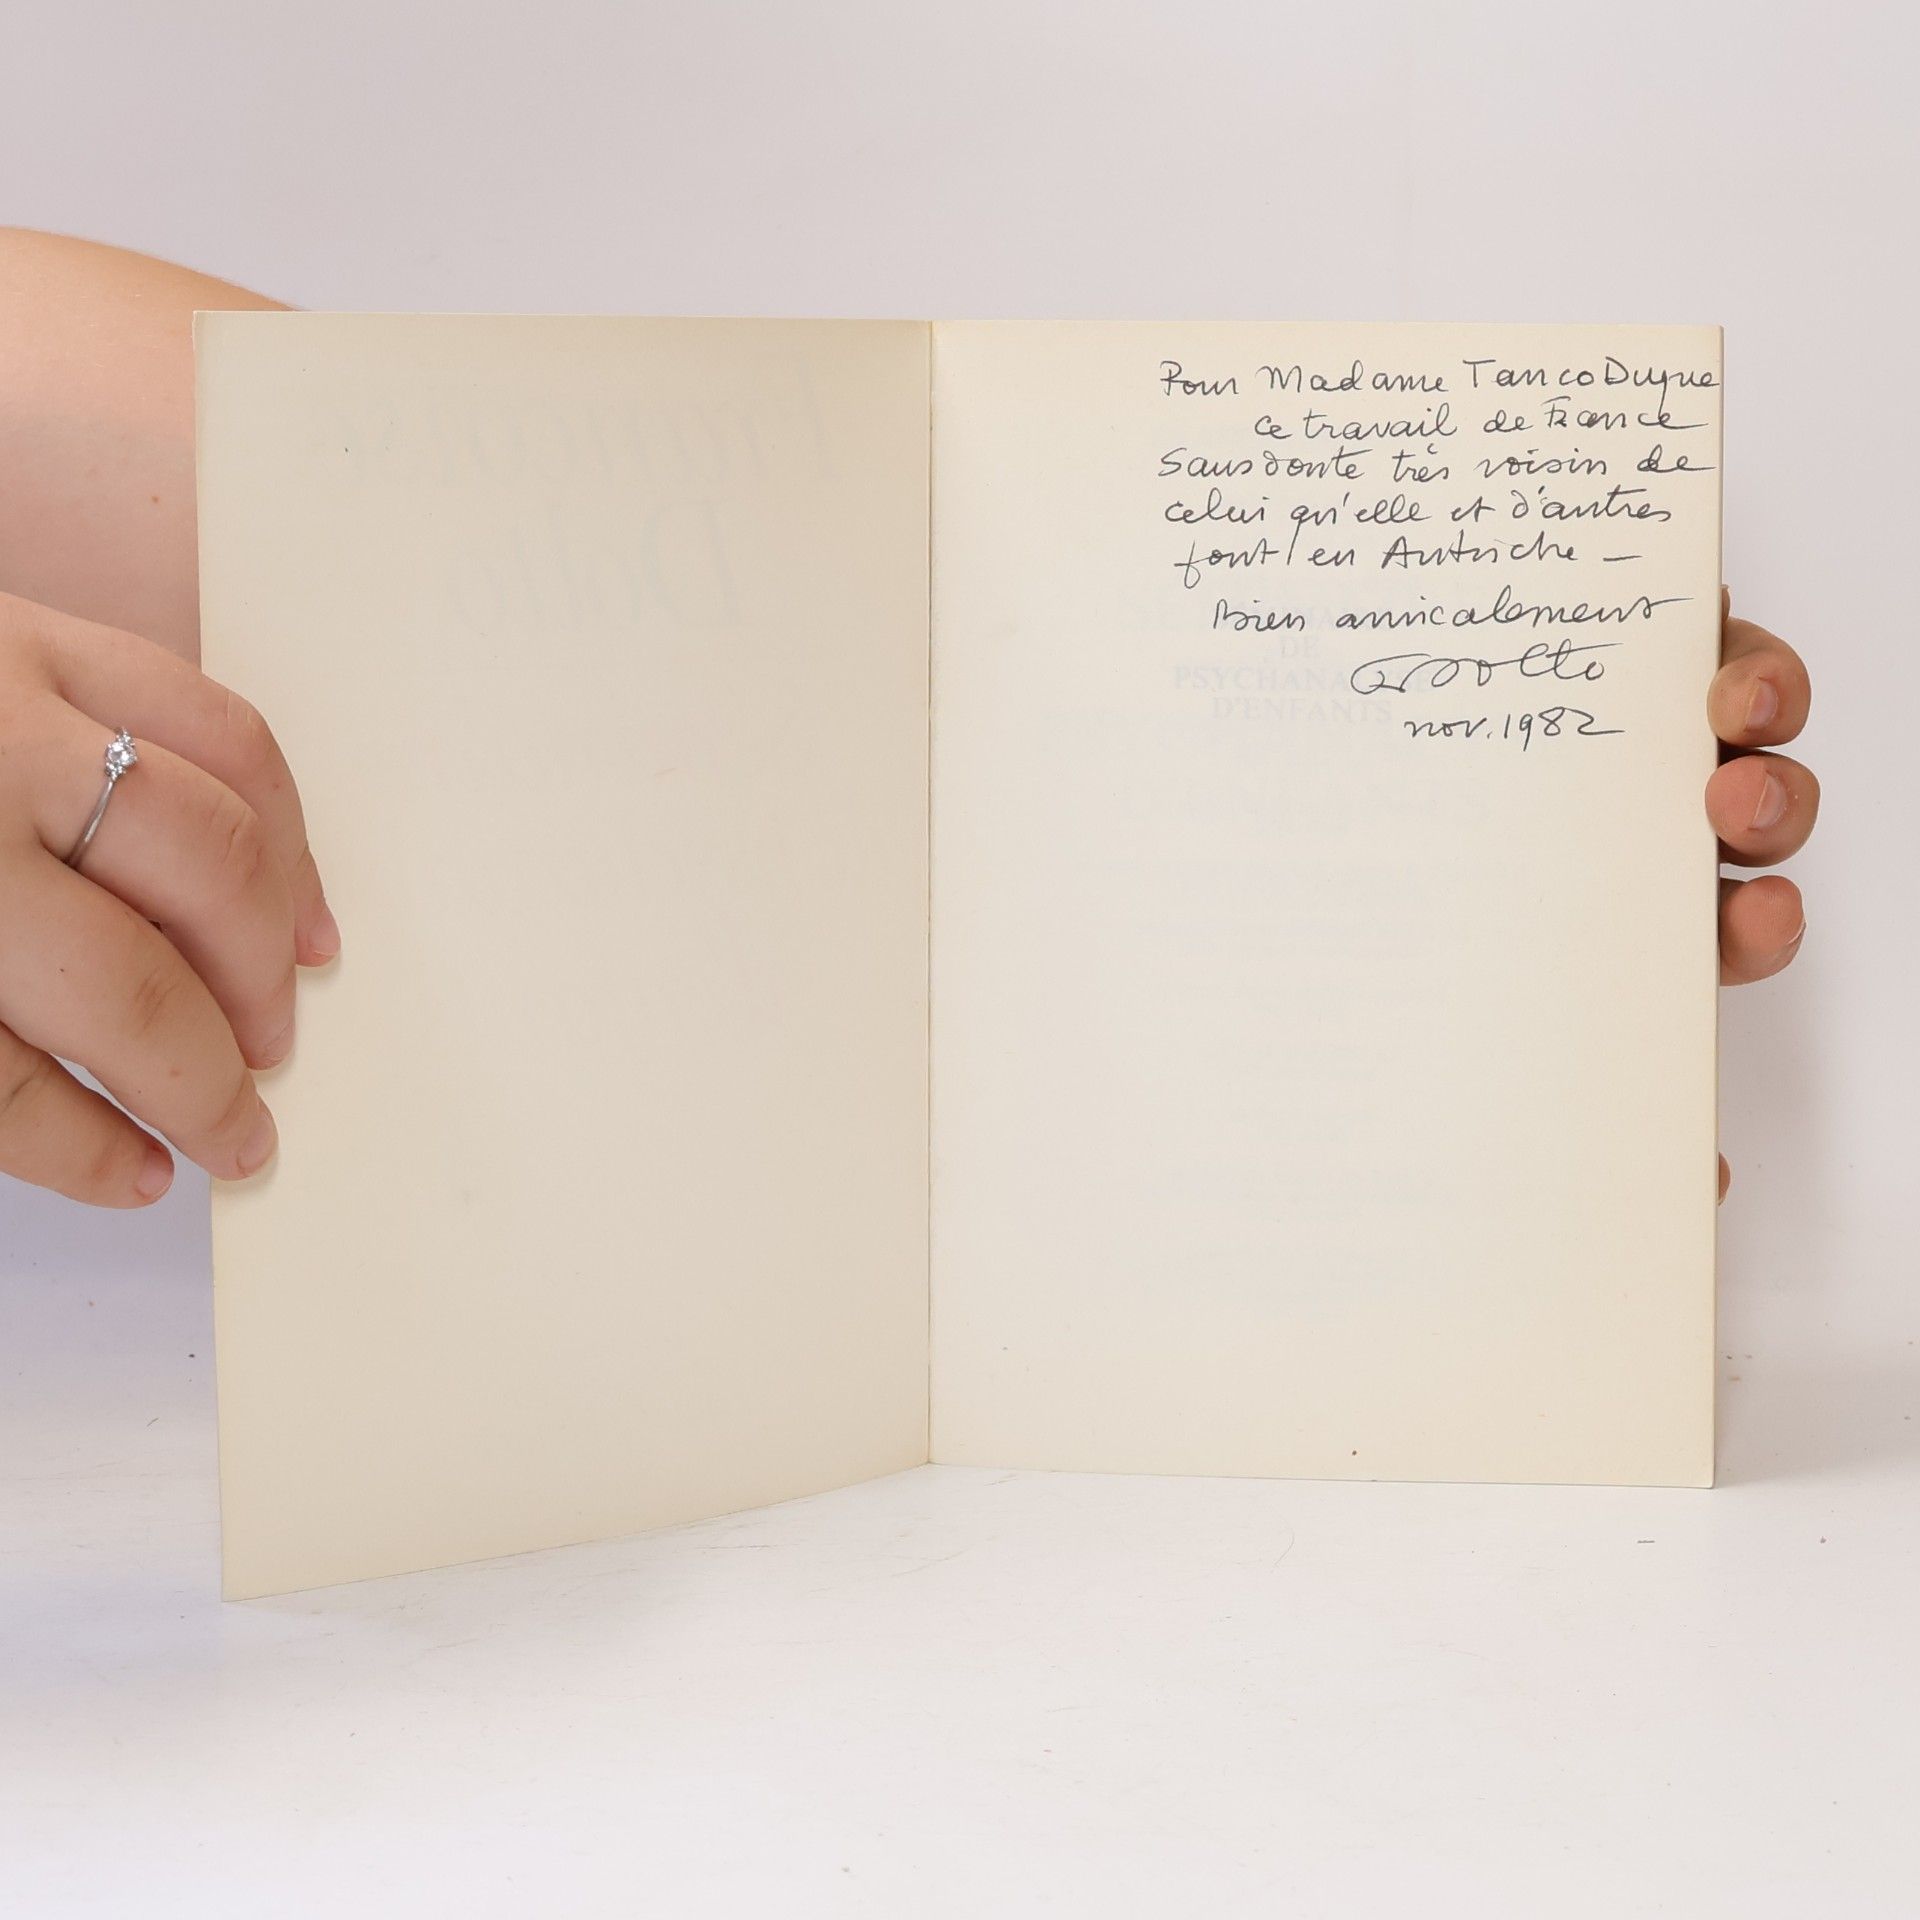 Pour Madame Tanco Duque
ce travail de France
Sans doute très voisin de
celui qu'elle et d'autres
font en Autriche –
Bien amicalement
FDolto
nov. 1982
DE
PSYCHANALYSE
D'ENFANTS